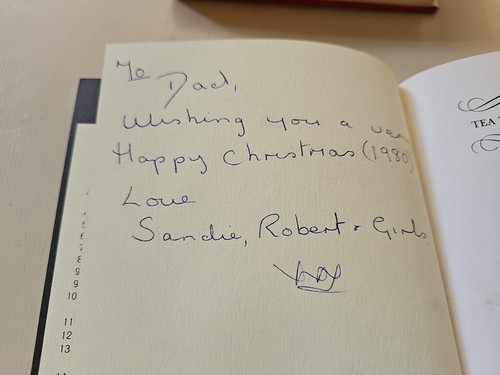 To
Dad,
Wishing you a very
Happy Christmas (1980)
Love
Sandie, Robert & Girls
xxx
TEA
6
7
8
9
9
10
11
12
13